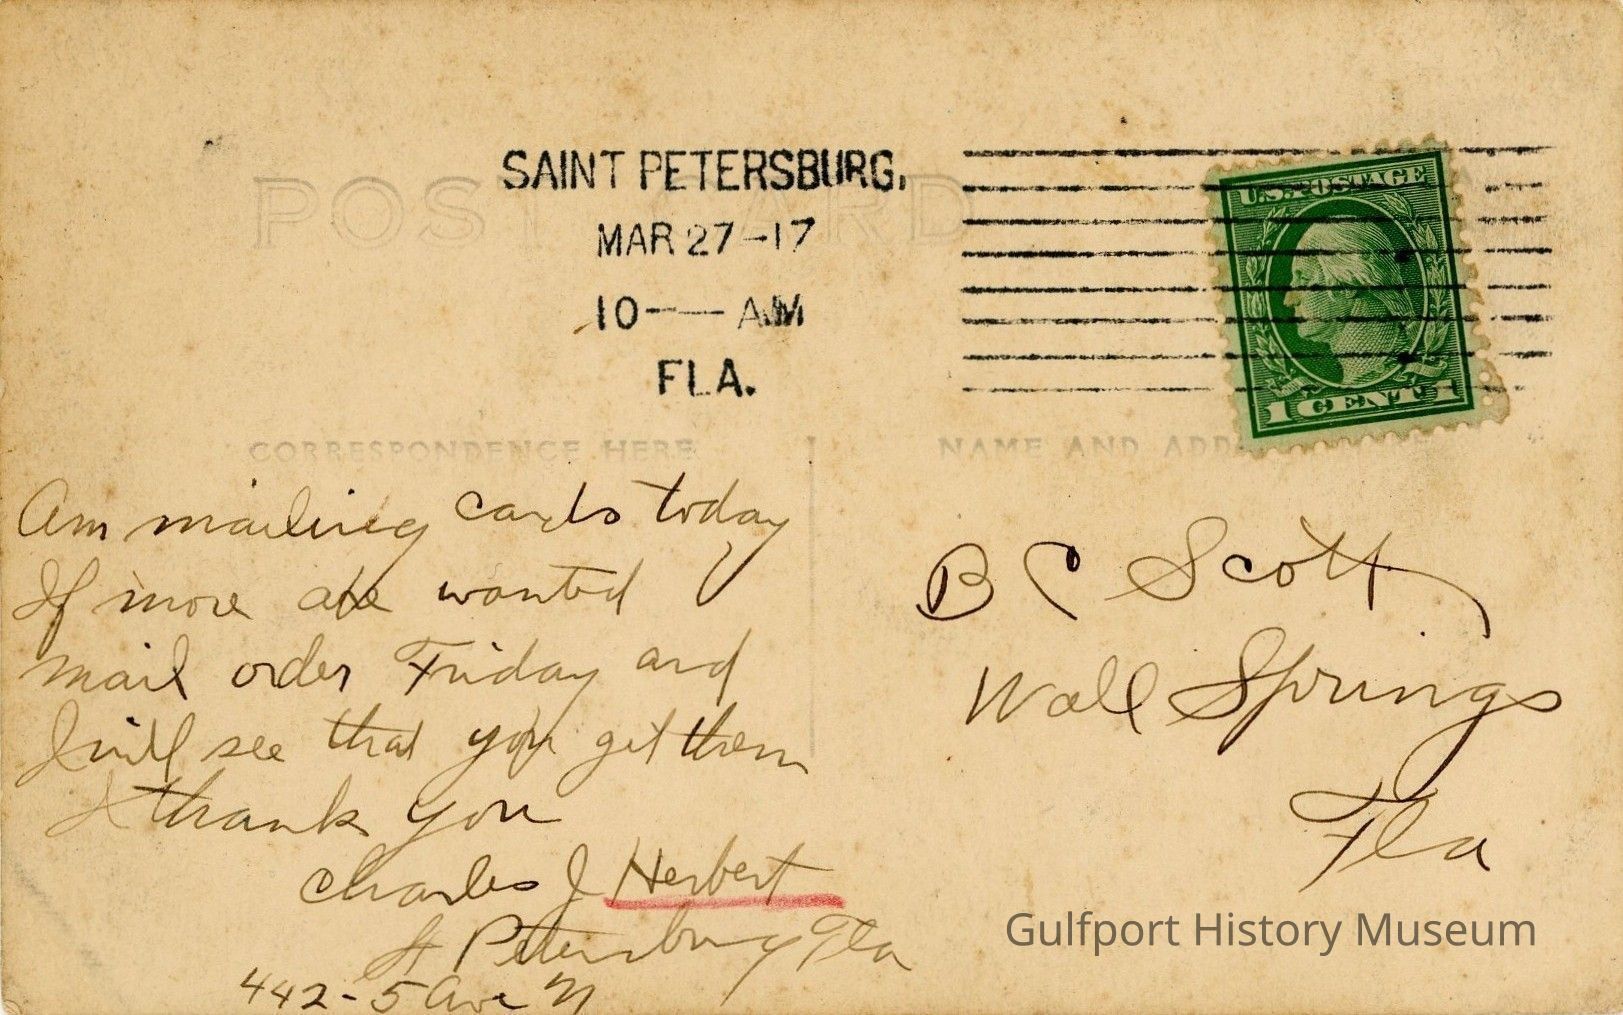 POST CARD
SAINT PETERSBURG,
MAR 27-17
10 — AM
FLA.
U.S. POSTAGE
1 CENT 1
CORRESPONDENCE HERE
NAME AND ADD
Am mailing cards today
If more are wanted
mail order Friday and
I will see that you get them
I thank you
Charles J Herbert
St Petersburg Fla
442-5 Ave N
B C Scott
Wall Springs
Fla
Gulfport History Museum